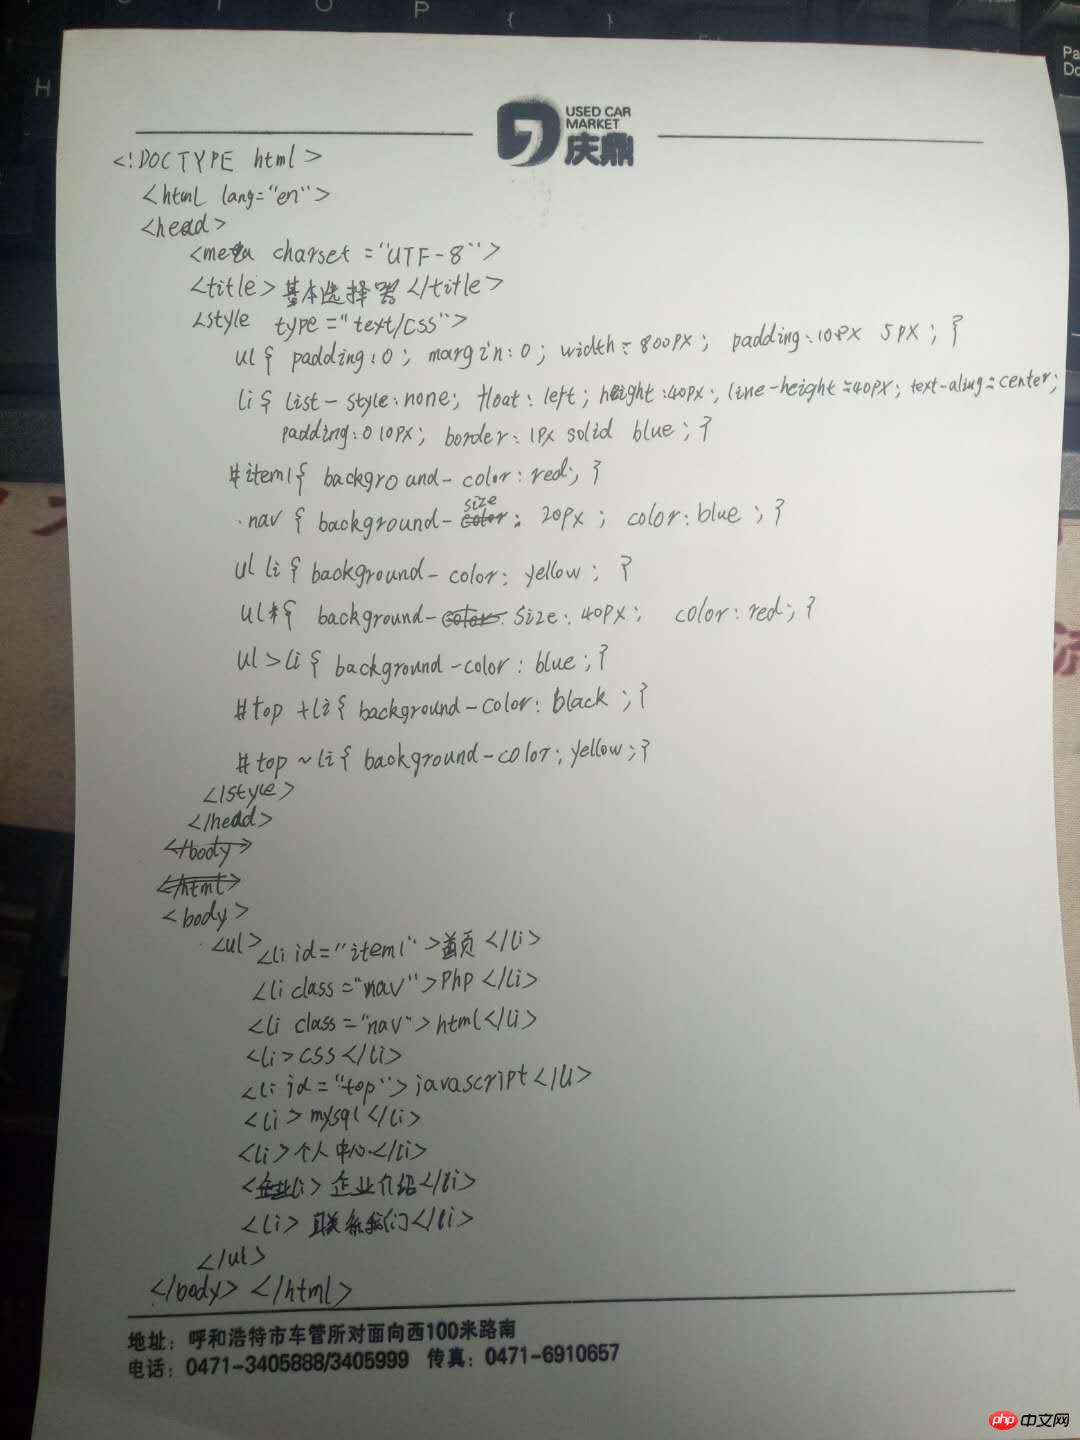 USED CAR
MARKET
庆鼎
<!DOCTYPE html>
<html lang="en">
<head>
<meta charset="UTF-8">
<title>基本选择器</title>
<style type="text/css">
ul{ padding:0; margin:0; width=800px; padding:10px 5px; }
li{ list-style:none; float:left; height:40px; line-height=40px; text-aling=center;
padding:0 10px; border:1px solid blue; }
#item1{ background-color: red; }
.nav { background-size: 20px; color:blue; }
ul li{ background-color: yellow; }
ul *{ background-size: 40px; color:red; }
ul>li{ background-color: blue; }
#top +li{ background-color: black; }
#top ~li{ background-color: yellow; }
</style>
</head>
</body>
</html>
<body>
<ul> <li id="item1">首页</li>
<li class="nav">php</li>
<li class="nav">html</li>
<li>css</li>
<li id="top">javascript</li>
<li>mysql</li>
<li>个人中心</li>
<li>企业介绍</li>
<li>联系我们</li>
</ul>
</body> </html>
地址：呼和浩特市车管所对面向西100米路南
电话：0471-3405888/3405999 传真：0471-6910657
H
I O P { }
php 中文网